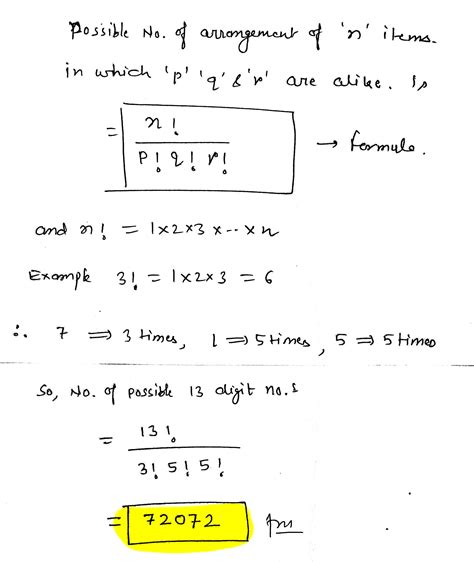 Possible No. of arrangement of 'n' items.
in which 'p' 'q' & 'r' are alike. is
= n! / p! q! r! → formule.
and n! = 1x2x3 x -- x n
Example 3! = 1x2x3 = 6
∴ 7 ⇒ 3 times, 1 ⇒ 5 times, 5 ⇒ 5 times
So, No. of possible 13 digit no.s
= 13! / 3! 5! 5!
= 72072 Ans